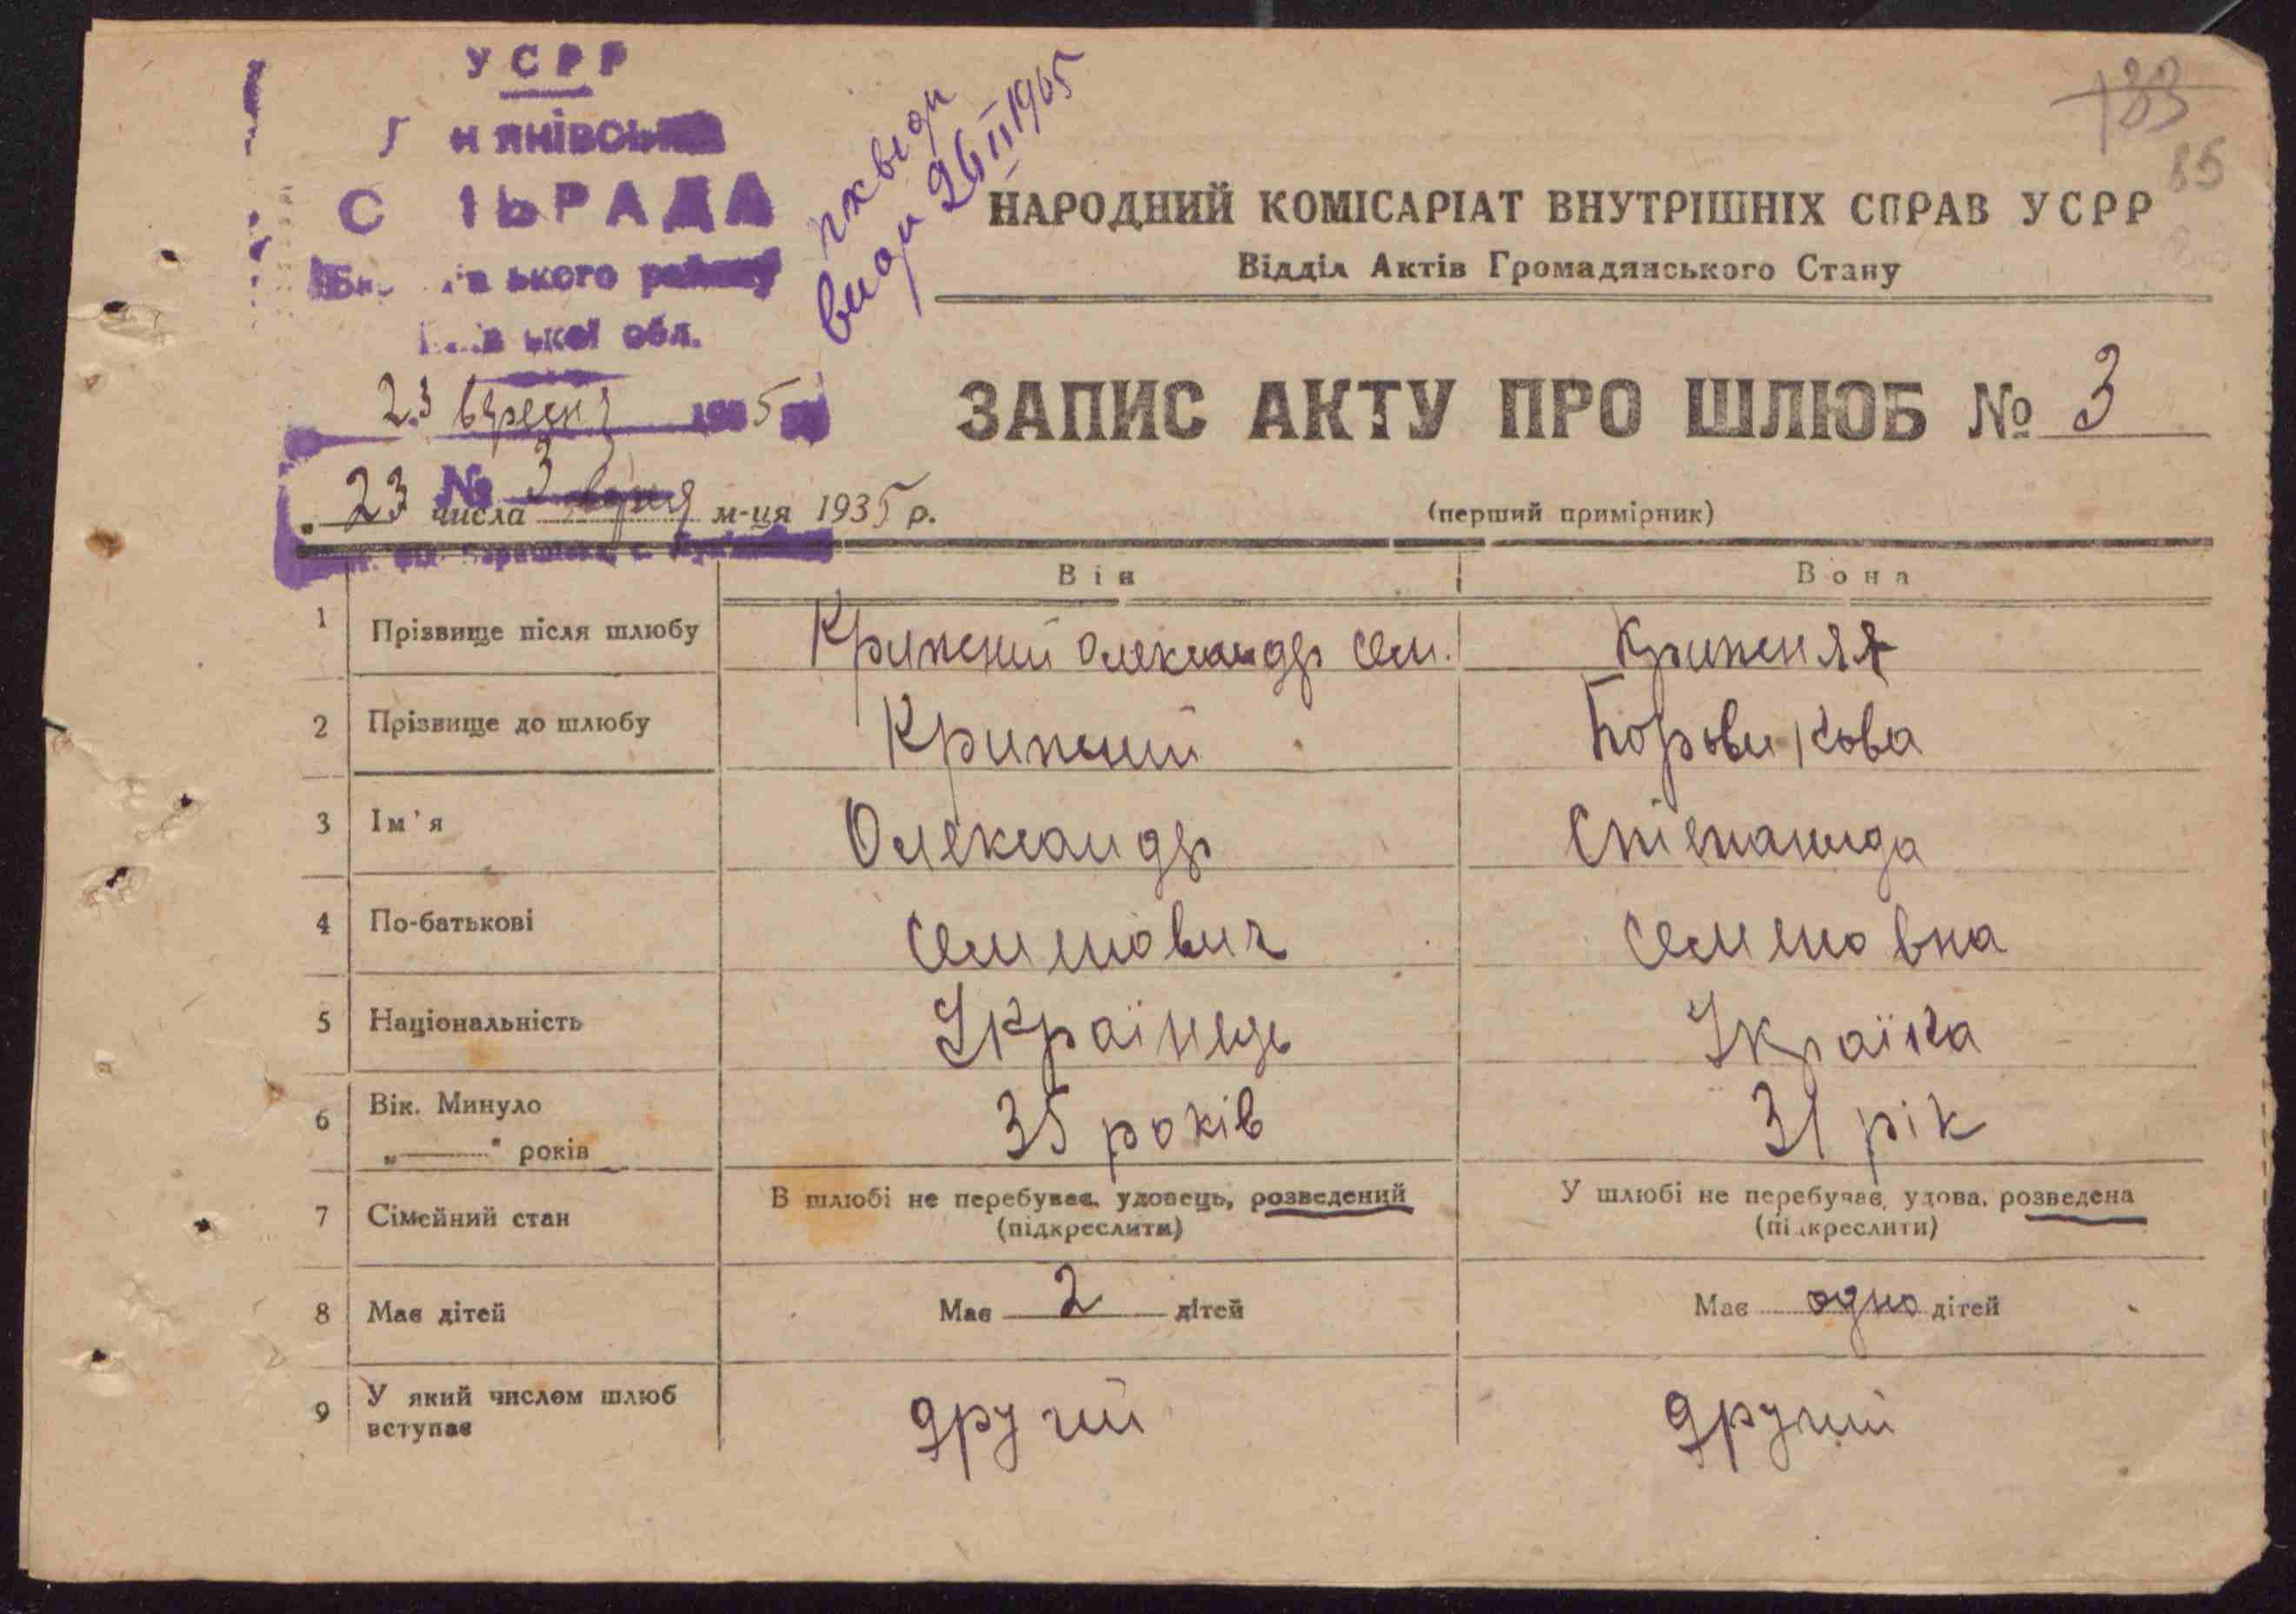 УСРР
ЬРАДА
ького району
обл.
23 вересня 1935
№ 3
видан 26 II 1965
133
85
НАРОДНИЙ КОМІСАРІАТ ВНУТРІШНІХ СПРАВ УСРР
Відділ Актів Громадянського Стану
ЗАПИС АКТУ ПРО ШЛЮБ № 3
„ 23 числа м-ця 1935 р.
(перший примірник)
Він Вона
1 Прізвище після шлюбу Крижний Олександр Сем. Крижняя
2 Прізвище до шлюбу Крижний Боровикова
3 Ім'я Олександр Степанида
4 По-батькові Семенович Семеновна
5 Національність Українець Українка
6 Вік. Минуло „ " років 35 років 31 рік
7 Сімейний стан В шлюбі не перебував, удовець, розведений (підкреслити) У шлюбі не перебував, удова, розведена (підкреслити)
8 Має дітей Має 2 дітей Має одно дітей
9 У який числом шлюб вступає другий другий